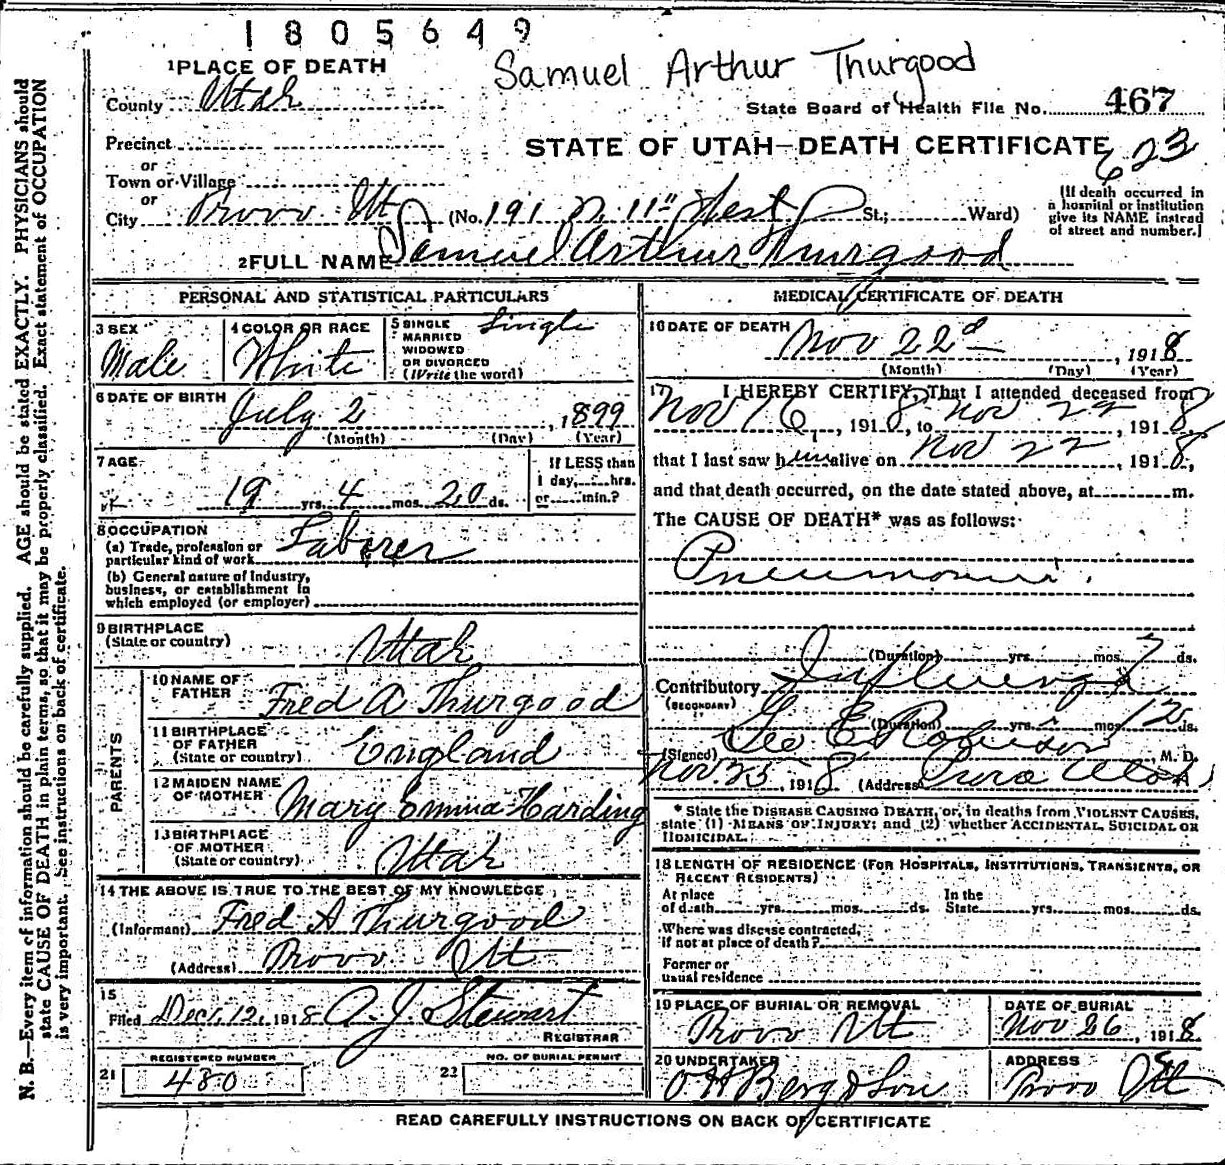 1805649
Samuel Arthur Thurgood
1 PLACE OF DEATH
County Utah
State Board of Health File No. 467
Precinct
STATE OF UTAH—DEATH CERTIFICATE 623
or
Town or Village
or
City Provo Ut (No. 191 N. 11" West St.; Ward)
(If death occurred in
a hospital or institution
give its NAME instead
of street and number.)
2 FULL NAME Samuel Arthur Thurgood
PERSONAL AND STATISTICAL PARTICULARS
3 SEX
Male
4 COLOR OR RACE
White
5 SINGLE
MARRIED
WIDOWED
OR DIVORCED
(Write the word)
Single
6 DATE OF BIRTH
July 2, 1899
(Month) (Day) (Year)
7 AGE
19 yrs. 4 mos. 20 ds.
If LESS than
1 day, hrs.
or min.?
8 OCCUPATION
(a) Trade, profession or
particular kind of work Laborer
(b) General nature of Industry,
business, or establishment in
which employed (or employer)
9 BIRTHPLACE
(State or country)
Utah
PARENTS
10 NAME OF
FATHER
Fred A Thurgood
11 BIRTHPLACE
OF FATHER
(State or country)
England
12 MAIDEN NAME
OF MOTHER
Mary Emma Harding
13 BIRTHPLACE
OF MOTHER
(State or country)
Utah
14 THE ABOVE IS TRUE TO THE BEST OF MY KNOWLEDGE
(Informant) Fred A Thurgood
(Address) Provo Ut
15
Filed Dec. 12, 1918 A. J. Stewart
REGISTRAR
REGISTERED NUMBER
21 480
NO. OF BURIAL PERMIT
22
MEDICAL CERTIFICATE OF DEATH
16 DATE OF DEATH
Nov 22d, 1918
(Month) (Day) (Year)
17 I HEREBY CERTIFY, That I attended deceased from
Nov 16, 1918, to Nov 22, 1918
that I last saw him alive on Nov 22, 1918,
and that death occurred, on the date stated above, at m.
The CAUSE OF DEATH* was as follows:
Pneumonia.
(Duration) yrs. mos. 7 ds.
Contributory Influenza
(SECONDARY)
(Duration) yrs. mos. 12 ds.
(Signed) Geo E Robison, M. D.
Nov. 25, 1918 (Address)
* State the DISEASE CAUSING DEATH, or, in deaths from VIOLENT CAUSES,
state (1) MEANS OF INJURY; and (2) whether ACCIDENTAL, SUICIDAL OR
HOMICIDAL.
18 LENGTH OF RESIDENCE (FOR HOSPITALS, INSTITUTIONS, TRANSIENTS, OR
RECENT RESIDENTS)
At place
of death yrs. mos. ds.
In the
State yrs. mos. ds.
Where was disease contracted,
if not at place of death?
Former or
usual residence
19 PLACE OF BURIAL OR REMOVAL
Provo Ut
DATE OF BURIAL
Nov 26, 1918
20 UNDERTAKER
O H Berg & Son
ADDRESS
Provo Ut
READ CAREFULLY INSTRUCTIONS ON BACK OF CERTIFICATE
N. B.—Every item of information should be carefully supplied. AGE should be stated EXACTLY. PHYSICIANS should
state CAUSE OF DEATH in plain terms, so that it may be properly classified. Exact statement of OCCUPATION
is very important. See instructions on back of certificate.